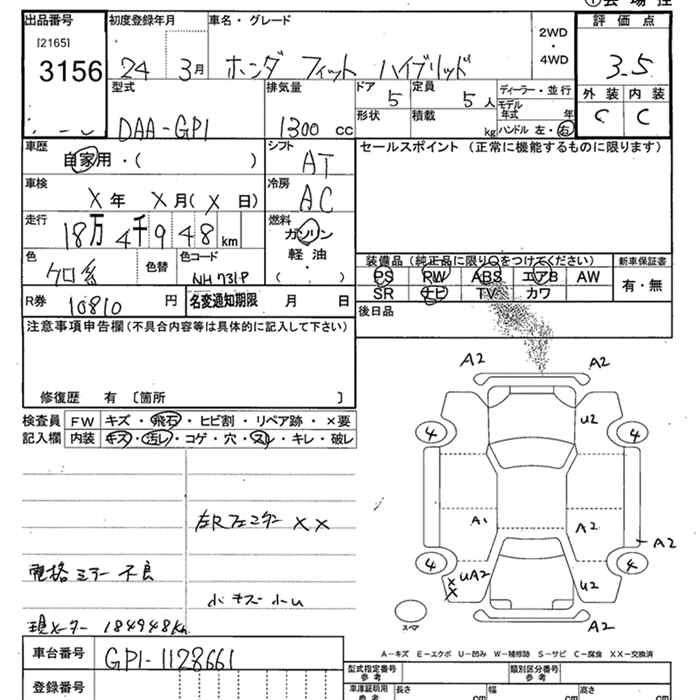 出品番号 初度登録年月 車名・グレード 2WD・4WD 評価点
[2165]
3156 24 3月 ホンダ フィット ハイブリッド 3.5
型式 排気量 ドア 5 定員 5人 ディーラー・並行 外装 内装
モデル年式 年 C C
DAA-GP1 1300cc 形状 積載 kg ハンドル 左・右
車歴 自家用・( ) シフト AT セールスポイント (正常に機能するものに限ります)
車検 X年 X月(X日) 冷房 AC
走行 18万4千948km 燃料 ガソリン
軽油
・
( )
色 クロ系 色替 色コード NH731P
装備品(純正品に限り○をつけてください) 新車保証書
PS PW ABS エアB AW 有・無
SR ナビ TV カワ
R券 10810円 名変通知期限 月 日
後日品
注意事項申告欄(不具合内容等は具体的に記入して下さい)
修復歴 有 〔箇所 〕
検査員 FW キズ・飛石・ヒビ割・リペア跡・×要
記入欄 内装 キズ・汚レ・コゲ・穴・スレ・キレ・破レ
A2 A2
U2
4 4
左Rフェンダー XX
A1 A2
A2
4 4
電格ミラー不良
UA2 U2
XX
小キズ小U
現メーター 184948Km
スペア
A2
A-キズ E-エクボ U-凹み W-補修跡 S-サビ C-腐食 XX-交換済
車台番号 GP1-1128661
型式指定番号 参考 類別区分番号 参考
登録番号 車庫証明用 参考 長さ cm 幅 cm 高さ cm